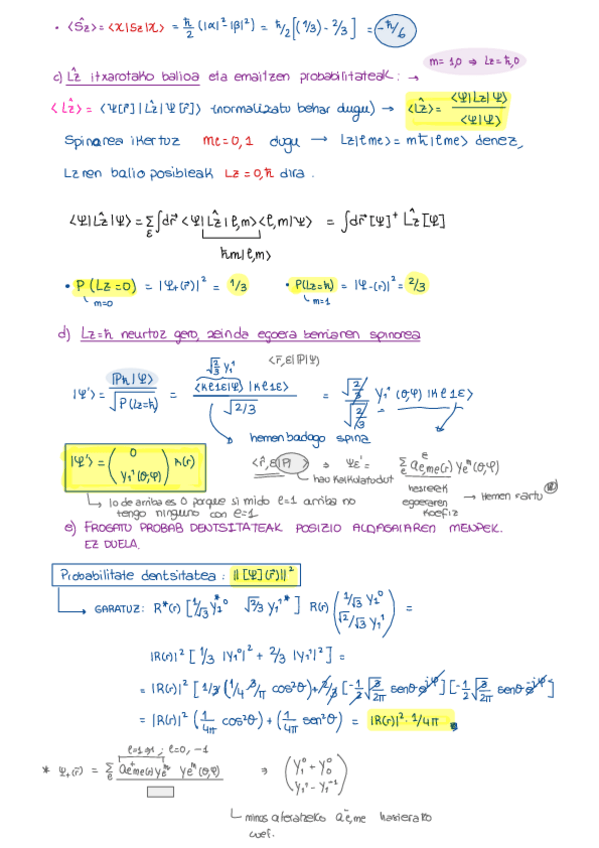 • <Ŝz> = <χ|Sz|χ> = ħ/2 (|α|² - |β|²) = ħ/2 [(1/3) - 2/3] = -ħ/6
m = 1,0 ⇒ Lz = ħ,0
c) L̂z itxarotako balioa eta emaitzen probabilitateak: →
<L̂z> = <Ψ[r⃗]|L̂z|Ψ[r⃗]> (normalizatu behar dugu) → <L̂z> = <Ψ|Lz|Ψ> / <Ψ|Ψ>
Spinarea ikertuz me = 0, 1 dugu → Lz|l me> = mħ|l me> denez,
Lz ren balio posibleak Lz = 0, ħ dira.
<Ψ|L̂z|Ψ> = Σ_ε ∫dr⃗ <Ψ|L̂z|l,m><l,m|Ψ> = ∫dr⃗ [Ψ]⁺ L̂z [Ψ]
ħm|l,m>
• P(Lz=0) = |Ψ₊(r⃗)|² = 1/3 • P(Lz=ħ) = |Ψ₋(r⃗)|² = 2/3
m=0 m=1
d) Lz=ħ neurtuz gero, zein da egoera berriaren spinorea
√2/3 Y₁¹ <r⃗,ε|P|Ψ>
|Ψ'> = |Pħ|Ψ> / √P(Lz=ħ) = <Kl1ε|Ψ> |Kl1ε> / √2/3 = √2/3 / √2/3 Y₁¹(θ,φ) |Kl1ε>
hemen badago spina
|Ψ'> = (0 / Y₁¹(θ,φ)) R(r)
<r⃗,ε|P|> ⇒ Ψε' = Σ_l a^ε_l,me(r) Yl^m(θ,φ)
hau kalkulatu dut
hasierako egoeraren koefiz → Hemen sartu
lo de arriba es 0 porque si mido l=1 arriba no
tengo ninguno con l=1
e) FROGATU PROBAB DENTSITATEAK POSIZIO ALDAGAIAREN MENPEK.
EZ DUELA.
Probabilitate dentsitatea: ||[Ψ](r⃗)||²
GARATUZ: R*(r) [1/√3 Y₁⁰* √2/3 Y₁¹*] R(r) (1/√3 Y₁⁰ / √2/√3 Y₁¹) =
|R(r)|² [1/3 |Y₁⁰|² + 2/3 |Y₁¹|²] =
= |R(r)|² [1/3 (1/4 3/π cos²θ) + 2/3 [-1/2 √3/2π senθ e^-iφ] [-1/2 √3/2π senθ e^iφ]
= |R(r)|² (1/4π cos²θ) + (1/4π sen²θ) = |R(r)|² · 1/4π
l=1 ; l=0, -1
* Ψ₊(r⃗) = Σ_l a⁺l,me(r) Yl^m Yl^m(θ,φ) ⇒ (Y₁⁰ + Y₀⁰ / Y₁¹ - Y₁⁻¹)
a⁻l,me hasierako
coef.